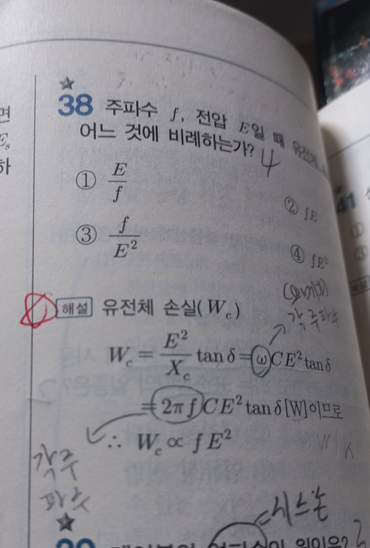 38 주파수 f, 전압 E일 때 유전체
어느 것에 비례하는가? 4
① E/f
② fE
③ f/E²
④ fE²
해설 유전체 손실(W_c)
각주파수
W_c = E²/X_c tanδ = ωCE² tanδ
= 2πfCE² tanδ[W]이므로
∴ W_c ∝ fE²
각주
파수
시스논
면
E_s
하
41
①
③